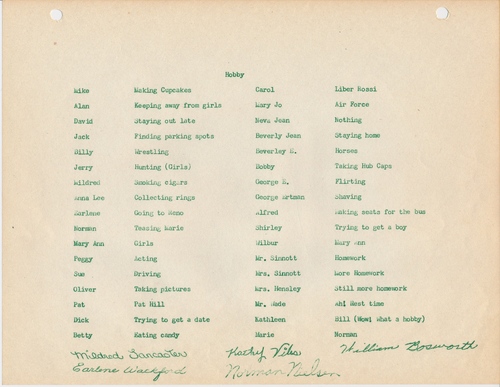 Hobby
Mike Making Cupcakes Carol Liber Rossi
Alan Keeping away from girls Mary Jo Air Force
David Staying out late Neva Jean Nothing
Jack Finding parking spots Beverly Jean Staying home
Billy Wrestling Beverley E. Horses
Jerry Hunting (Girls) Bobby Taking Hub Caps
Mildred Smoking cigars George E. Flirting
Anna Lee Collecting rings George Artman Shaving
Earlene Going to Reno Alfred Making seats for the bus
Norman Teasing Marie Shirley Trying to get a boy
Mary Ann Girls Wilbur Mary Ann
Peggy Acting Mr. Sinnott Homework
Sue Driving Mrs. Sinnott More Homework
Oliver Taking pictures Mrs. Hensley Still more homework
Pat Pat Hill Mr. Wade Ah! Rest time
Dick Trying to get a date Kathleen Bill (Wow! What a hobby)
Betty Eating candy Marie Norman
Mildred Lancaster Kathy Viles William Bosworth
Earlene Wackford Norman Neilsen